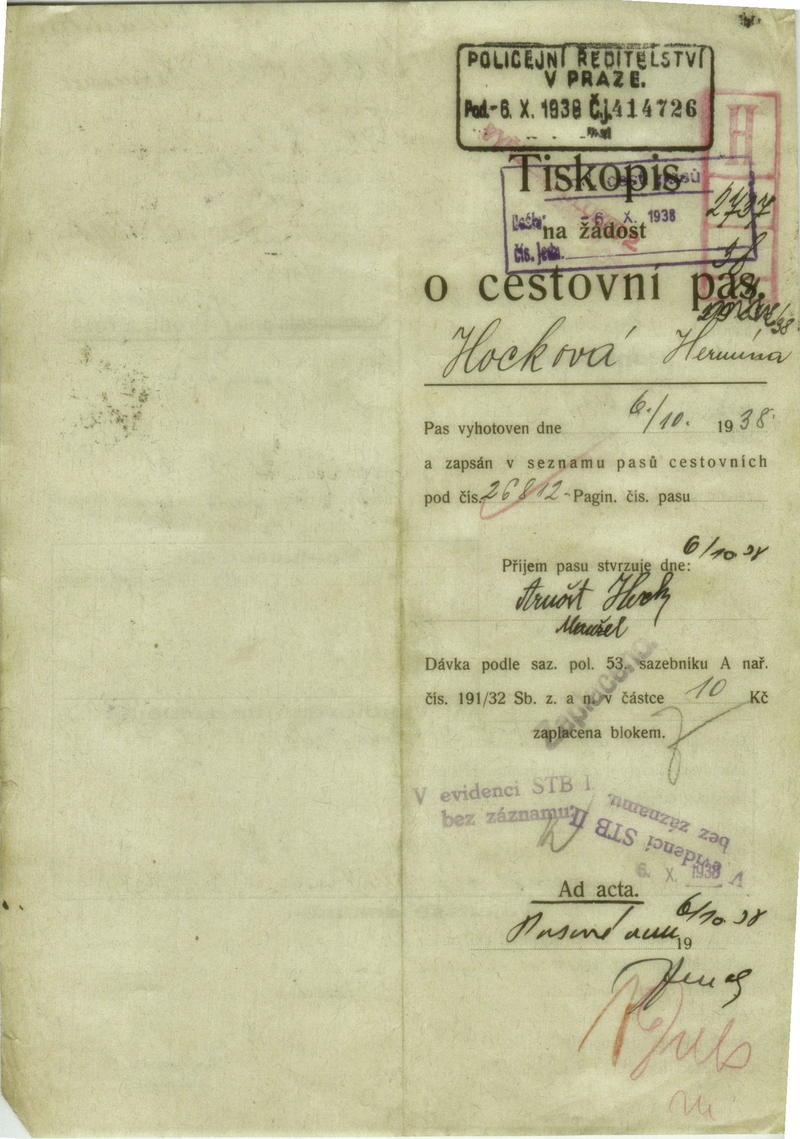 POLICEJNÍ ŘEDITELSTVÍ
V PRAZE.
Pod. -6. X. 1938 Čj. 414726
H
Tiskopis
cest. pasů
Došlo - 6. X. 1938
2737
na žádost
čís. jedn.
38
o cestovní pas.
Hocková Hermína
Pas vyhotoven dne 6./10. 1938.
a zapsán v seznamu pasů cestovních
pod čís. 26812 - Pagin. čís. pasu
Příjem pasu stvrzuje dne: 6/10 38
Arnošt Hock
Manžel
Dávka podle saz. pol. 53. sazebníku A nař.
čís. 191/32 Sb. z. a n. v částce 10 Kč
Zaplaceno.
zaplacena blokem.
V evidenci STB I.
bez záznamu:
V evidenci STB II
bez záznamu.
6. X. 1938
Ad acta.
6/10 38
19